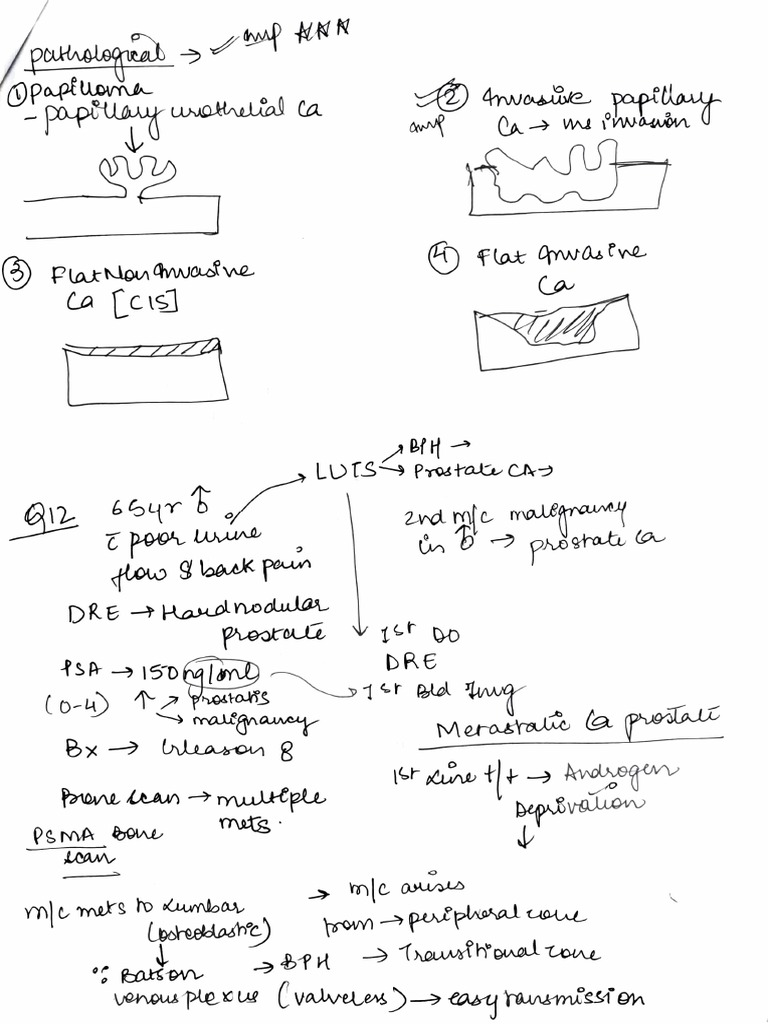 pathological → ✓ imp ***
① Papilloma
- papillary urothelial Ca
② Invasive papillary
imp Ca → ms invasion
③ Flat Non Invasive
Ca [CIS]
④ Flat Invasive
Ca
LUTS → BPH →
→ Prostate CA →
Q12 65yr ♂
c̄ poor urine
flow & back pain
2nd m/c malignancy
in ♂ → prostate Ca
DRE → Hard nodular
prostate
1st DO
DRE
PSA → 150 ng/ml
(0-4) ↑ → prostatis
→ malignancy
1st Bld Invg
Bx → Gleason 8
Metastatic Ca prostate
1st Line t/t → Androgen
Deprivation
↓
Bone scan → multiple
mets.
PSMA Bone
scan
m/c mets to Lumbar
(osteoblastic)
→ m/c arises
from → peripheral zone
→ BPH → Transitional zone
∵ Batson
venous plexus (valveless) → easy transmission